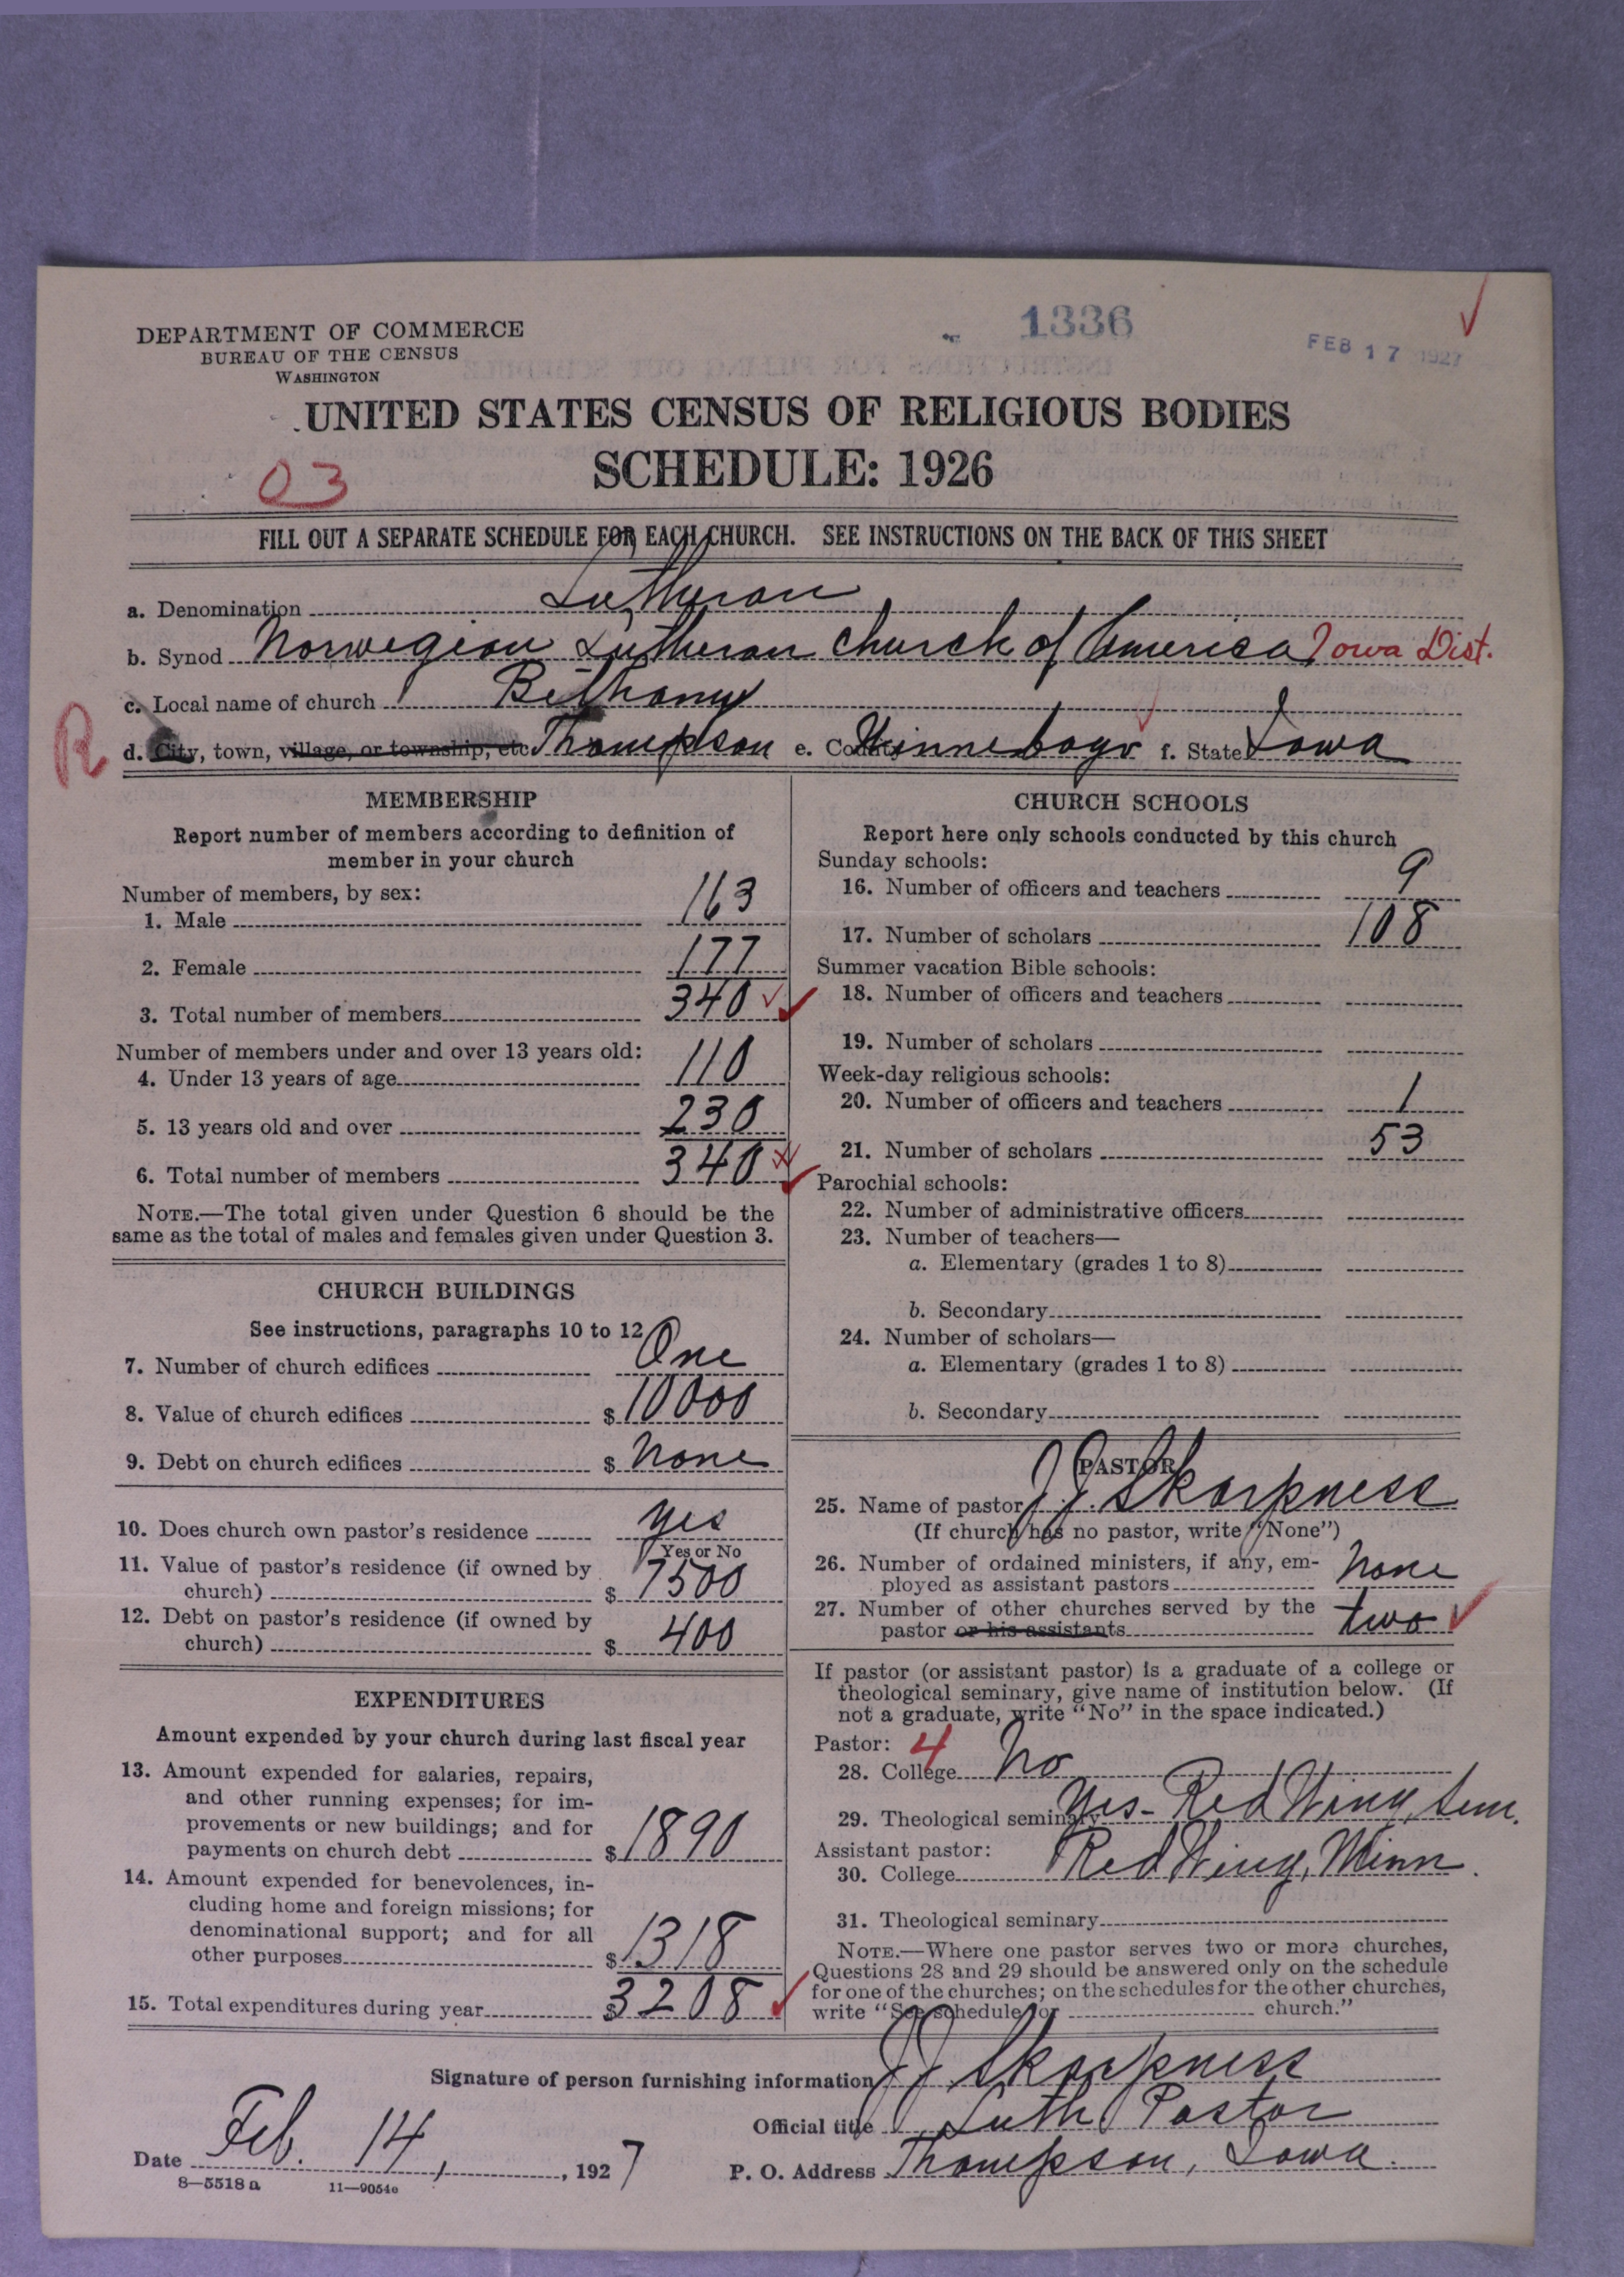 DEPARTMENT OF COMMERCE
BUREAU OF THE CENSUS
WASHINGTON
1336
FEB 17 1927
UNITED STATES CENSUS OF RELIGIOUS BODIES
SCHEDULE: 1926
03
FILL OUT A SEPARATE SCHEDULE FOR EACH CHURCH. SEE INSTRUCTIONS ON THE BACK OF THIS SHEET
a. Denomination Lutheran
b. Synod Norwegian Lutheran Church of America Iowa Dist.
c. Local name of church Bethany
R
d. City, town, village, or township, etc. Thompson e. County Winnebago f. State Iowa
MEMBERSHIP
Report number of members according to definition of
member in your church
Number of members, by sex:
1. Male 163
2. Female 177
3. Total number of members 340
Number of members under and over 13 years old:
4. Under 13 years of age 110
5. 13 years old and over 230
6. Total number of members 340
NOTE.—The total given under Question 6 should be the
same as the total of males and females given under Question 3.
CHURCH BUILDINGS
See instructions, paragraphs 10 to 12
7. Number of church edifices One
8. Value of church edifices $ 10000
9. Debt on church edifices $ None
10. Does church own pastor's residence yes
Yes or No
11. Value of pastor's residence (if owned by
church) $ 7500
12. Debt on pastor's residence (if owned by
church) $ 400
EXPENDITURES
Amount expended by your church during last fiscal year
13. Amount expended for salaries, repairs,
and other running expenses; for im-
provements or new buildings; and for
payments on church debt $ 1890
14. Amount expended for benevolences, in-
cluding home and foreign missions; for
denominational support; and for all
other purposes $ 1318
15. Total expenditures during year $ 3208
CHURCH SCHOOLS
Report here only schools conducted by this church
Sunday schools:
16. Number of officers and teachers 9
17. Number of scholars 108
Summer vacation Bible schools:
18. Number of officers and teachers
19. Number of scholars
Week-day religious schools:
20. Number of officers and teachers 1
21. Number of scholars 53
Parochial schools:
22. Number of administrative officers
23. Number of teachers—
a. Elementary (grades 1 to 8)
b. Secondary
24. Number of scholars—
a. Elementary (grades 1 to 8)
b. Secondary
PASTOR
25. Name of pastor J J Skarpness
(If church has no pastor, write "None")
26. Number of ordained ministers, if any, em-
ployed as assistant pastors None
27. Number of other churches served by the
pastor or his assistants two
If pastor (or assistant pastor) is a graduate of a college or
theological seminary, give name of institution below. (If
not a graduate, write "No" in the space indicated.)
Pastor: 4
28. College No
29. Theological seminary Yes - Red Wing Sem.
Assistant pastor:
30. College Red Wing, Minn.
31. Theological seminary
NOTE.—Where one pastor serves two or more churches,
Questions 28 and 29 should be answered only on the schedule
for one of the churches; on the schedules for the other churches,
write "See schedule for church."
Signature of person furnishing information J J Skarpness
Official title Luth Pastor
Date Feb. 14, 1927
P. O. Address Thompson, Iowa.
8—5518 a 11—9054e